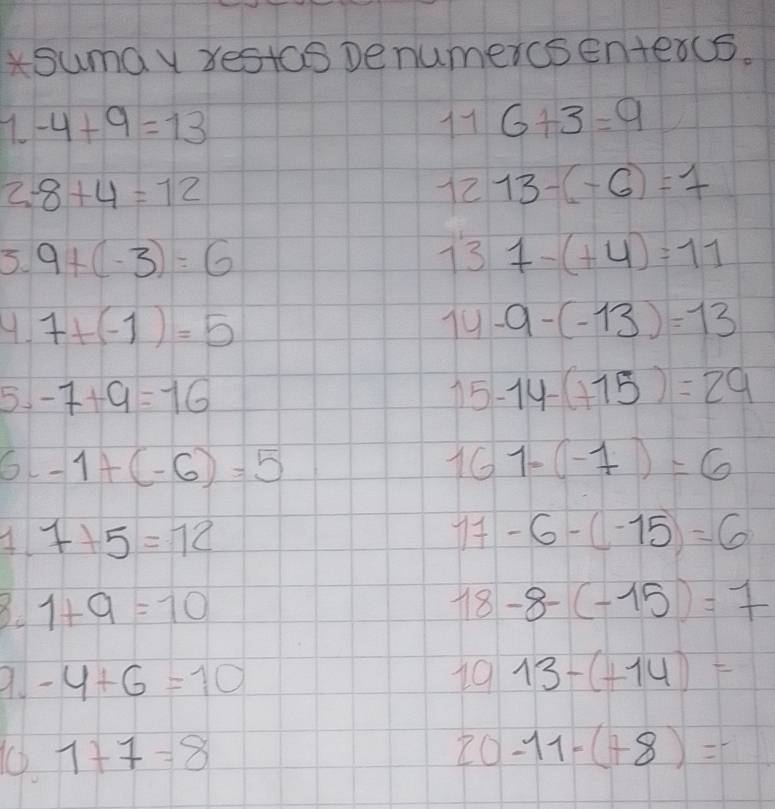 *suma y restas De numeros enteros.
1. -4+9=13
2. 8+4=12
3. 9+(-3)=6
4. 7+(-1)=5
5. -7+9=16
6. -1+(-6)=5
7. 7+5=12
8. 1+9=10
9. -4+6=10
10. 1+7=8
11 6+3=9
12 13-(-6)=7
13 7-(+4)=11
14 -9-(-13)=13
15 -14-(+15)=29
16 1-(-7)=6
17 -6-(-15)=6
18 -8-(-15)=7
19 13-(+14)=
20 -11-(+8)=-